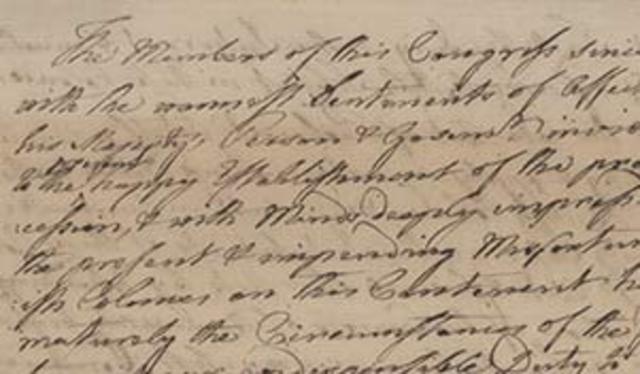 The Members of this Congress since
with the warmest Sentiments of Affec
his Majesty's Person & Governmt invio
to the present happy Establishment of the pro
cession, & with Minds deeply impress
the present & impending Misfortun
ish Colonies on this Continent h
maturely the Circumstances of the
indispensible Duty to